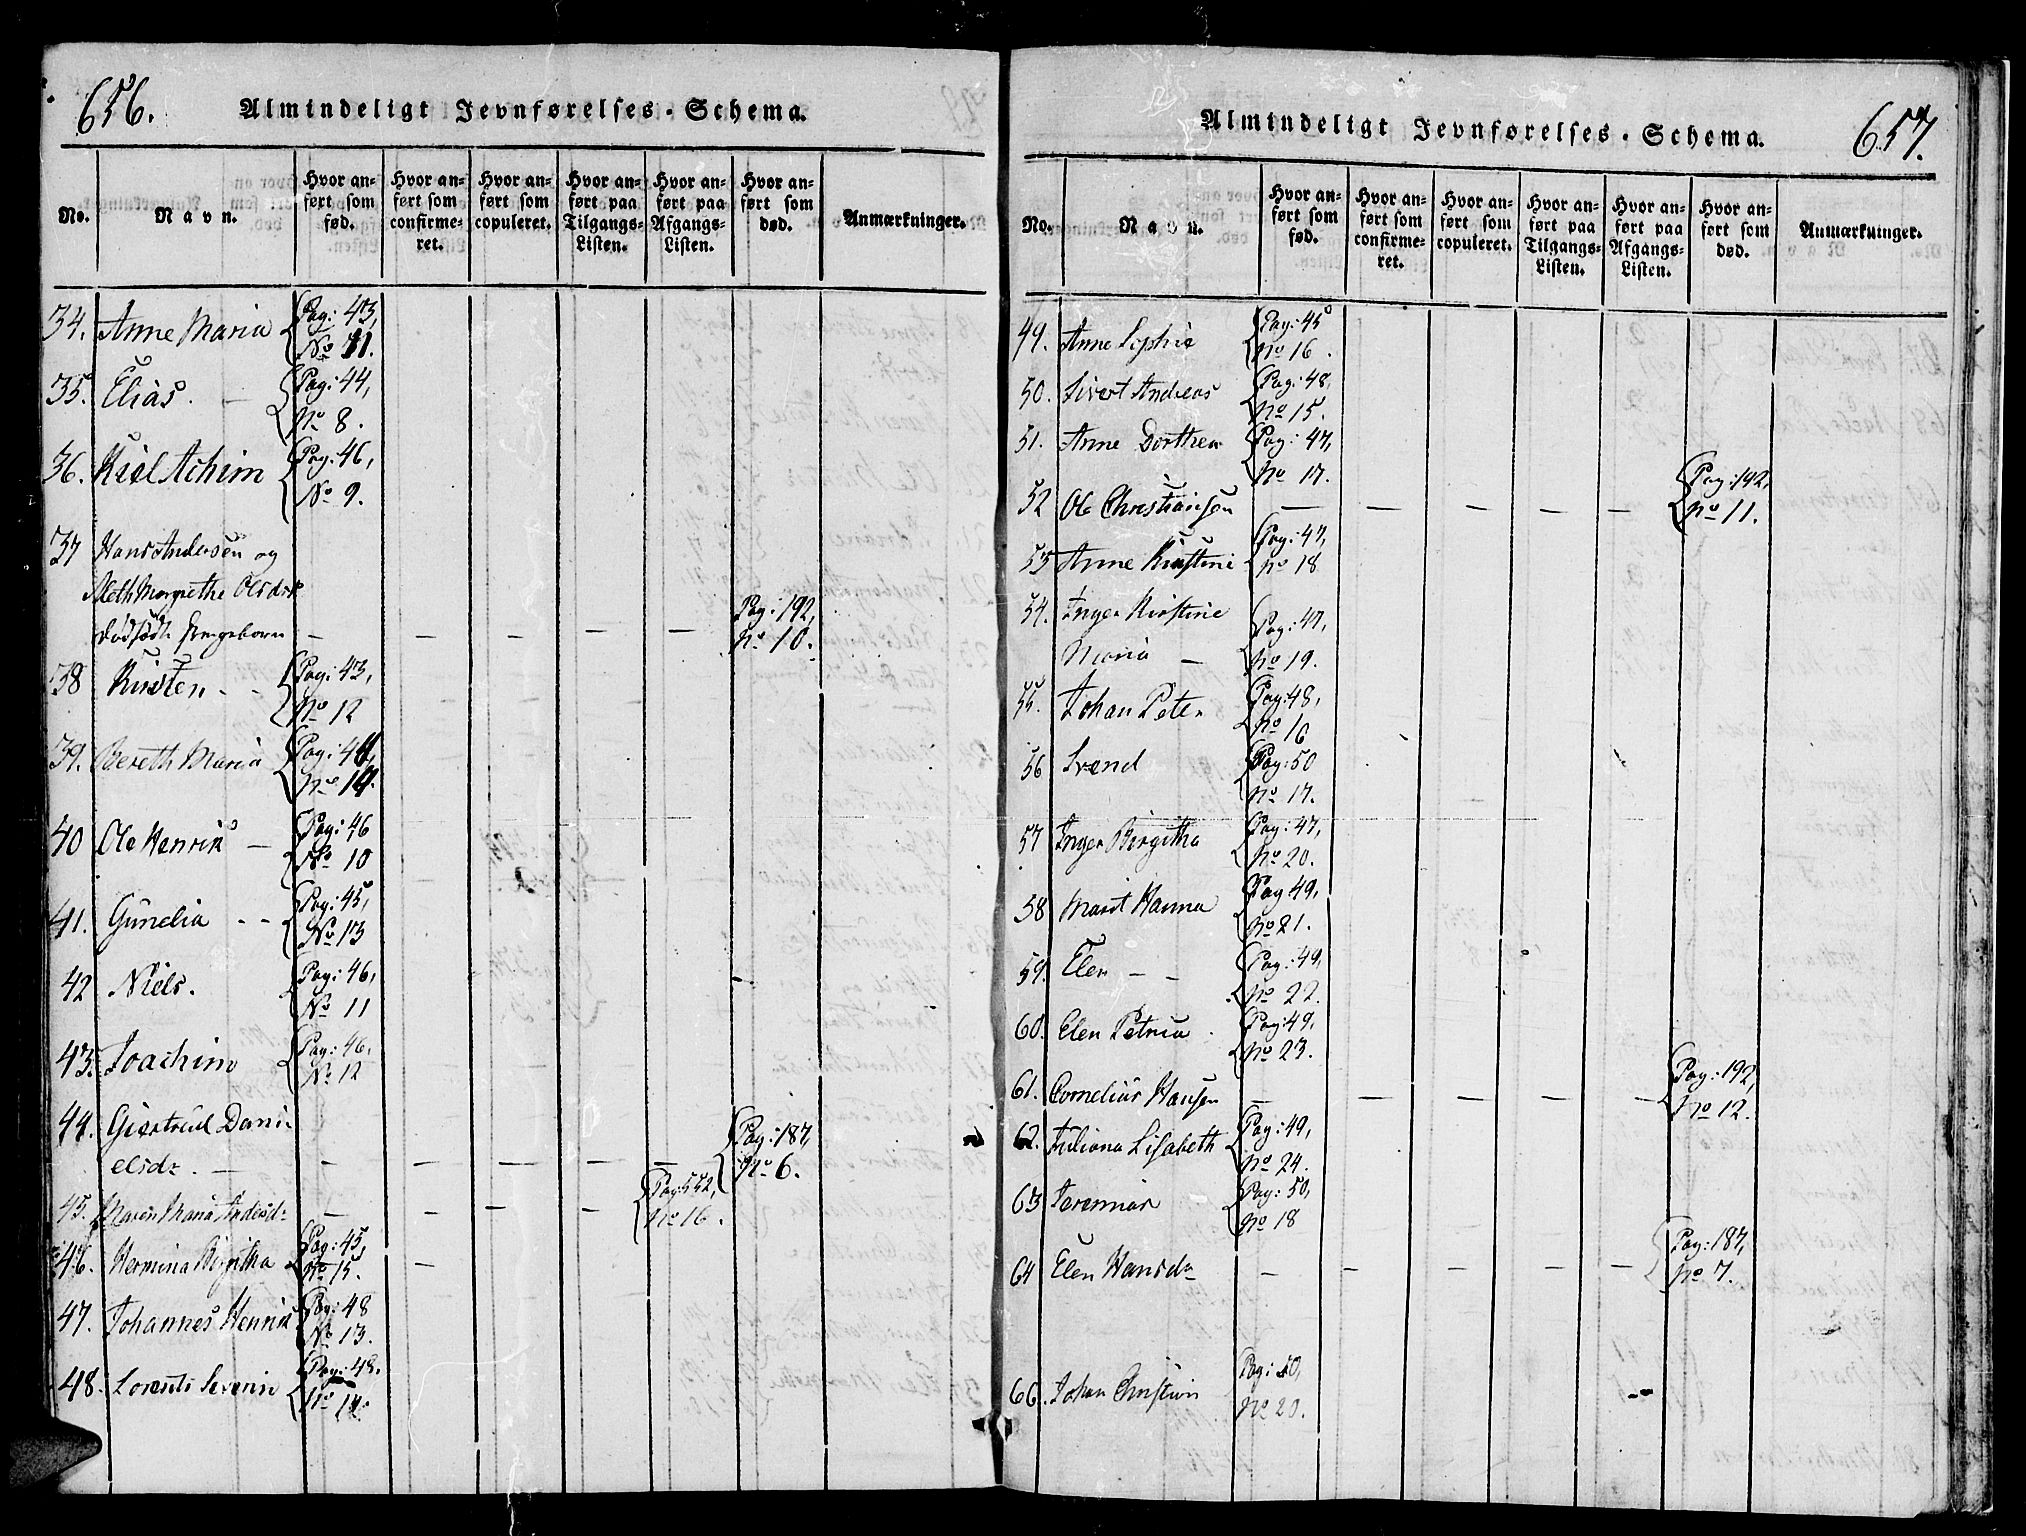 656.
Almindeligt Jevnførelses-Schema.
No.
Navn.
Hvor anført som fød.
Hvor anført som confirmeret.
Hvor anført som copuleret.
Hvor anført paa Tilgangs-Listen.
Hvor anført paa Afgangs-Listen.
Hvor anført som død.
Anmærkninger.
34. Anne Maria Pag: 43,
No 11.
35. Elias. — Pag: 44,
No 8.
36. Achim Pag: 46,
No 9.
37 Hans Andersen og
Margrethe Olsdr
— — — — — Pag: 192,
No 10.
38 Kirsten - - Pag: 43,
No 12
39. Bereth Maria Pag: 44,
No 14.
40 Ole Henrik — Pag: 46
No 10
41. Gunelia - - Pag: 45,
No 13
42 Niels. Pag: 46,
No 11
43. Joachim Pag: 46,
No 12
44. Giertrud Dani-
elsdr. — — — — — — Pag: 187,
No 6.
45. Maren Maria Andersdr — — — — Pag: 552,
No 16.
46. Hermina Birgitha Pag: 45, —
No 15.
47. Johannes Henrik Pag: 48
No 13.
48. Lorents Severin Pag: 48.
No 14
657.
Almindeligt Jevnførelses-Schema.
No.
Navn.
Hvor anført som fød.
Hvor anført som confirmeret.
Hvor anført som copuleret.
Hvor anført paa Tilgangs-Listen.
Hvor anført paa Afgangs-Listen.
Hvor anført som død.
Anmærkninger.
49. Anne Sophie Pag: 45
No 16.
50. Sivert Andreas Pag: 48,
No 15.
51. Anne Dorthea Pag: 47,
No 17.
52 Ole Christiansen — — — — — Pag: 192,
No 11.
53 Anne Kirstine Pag: 47,
No 18
54. Inger Kirstine
Maria — Pag: 47,
No 19.
55. Johan Peter Pag: 48,
No 16
56 Svend Pag: 50
No 17.
57 Inger Birgitha Pag: 47,
No 20.
58 Marit Hanna Pag 49,
No 21.
59. Elen — — Pag: 49,
No 22.
60. Elen Petria Pag: 49,
No 23.
61. Cornelius Hansen — — — — — Pag: 192,
No 12.
62. Juliana Lisabeth Pag: 49,
No 24.
63 Jeremias Pag: 50,
No 18
64 Elen Hansdr — — — — — Pag: 187,
No 7.
66. Johan Christian Pag: 50,
No 20.